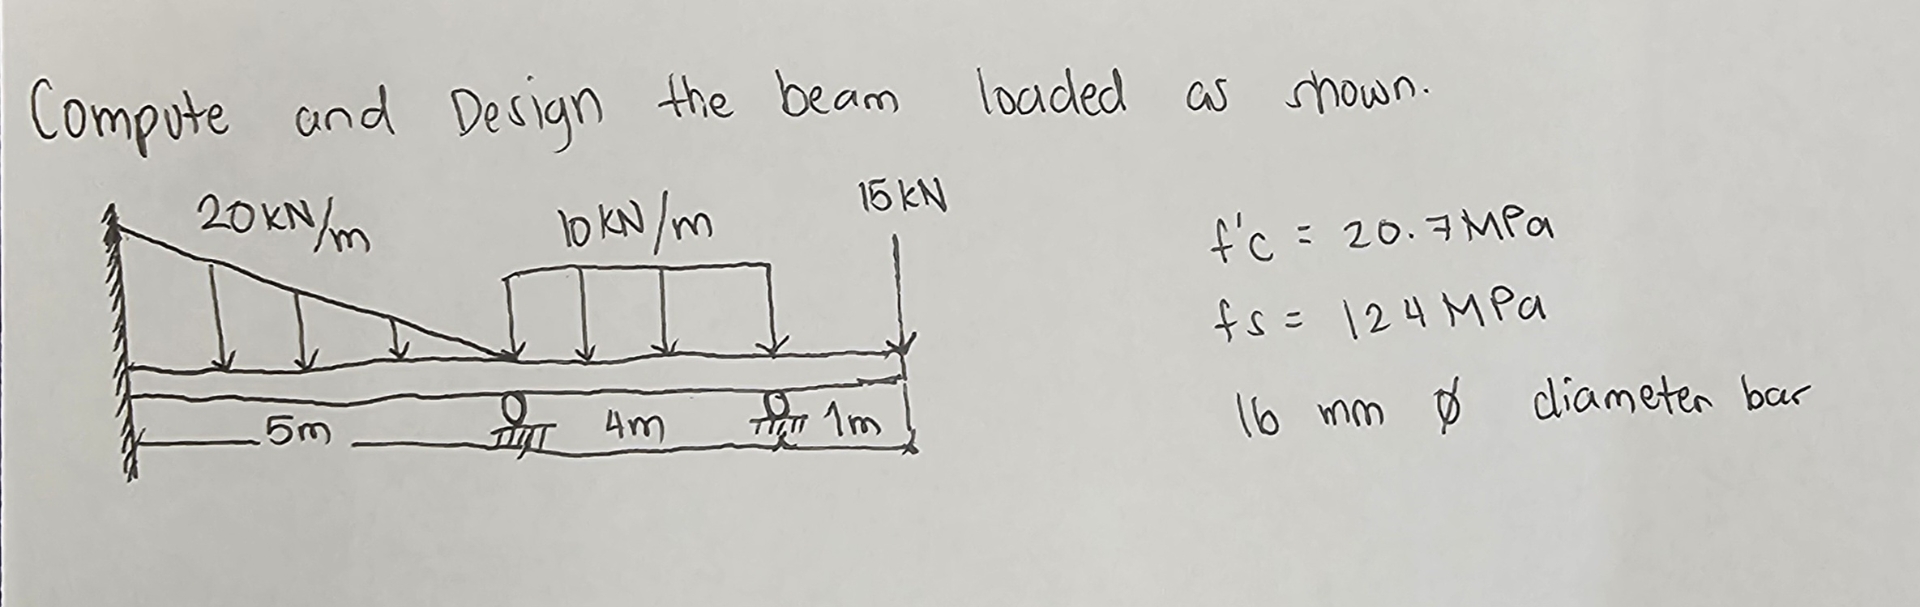 Compute and Design the beam loaded as shown.
20 kN/m
10 kN/m
15 kN
5m
4m
1m
f'c = 20.7 MPa
fs = 124 MPa
16 mm ϕ diameter bar